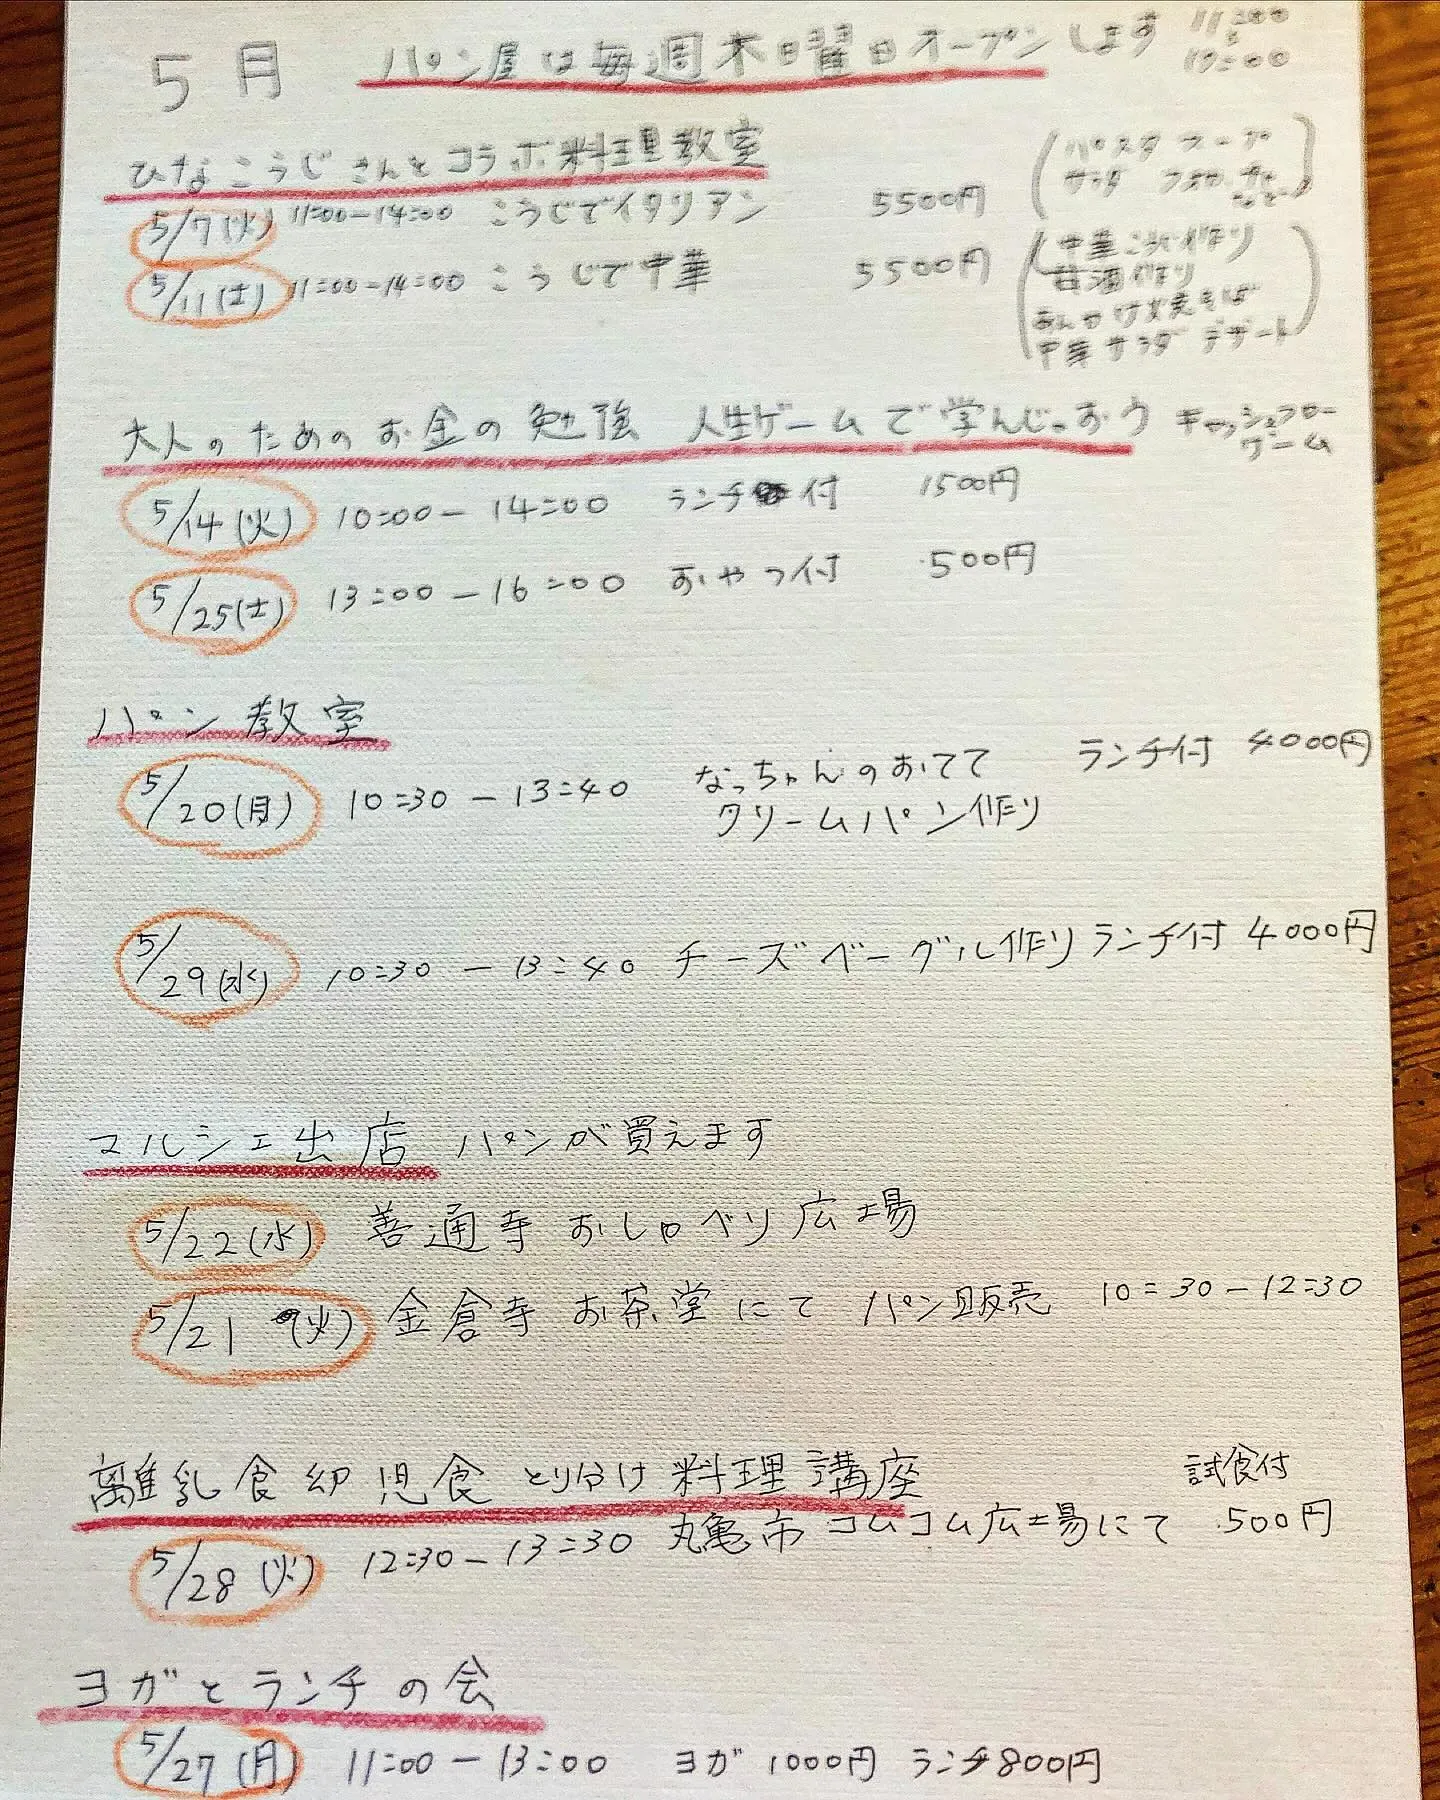 5月 パン屋は毎週木日曜日オープンします 11:00
〜
17:00
ひなこうじさんとコラボ料理教室
5/7(火) 11:00-14:00 こうじでイタリアン 5500円
(パスタ スープ
サラダ フォカッチャ
など)
5/11(土) 11:00-14:00 こうじで中華 5500円
(中華こうじ作り
甘酒作り
あんかけ焼きそば
中華サラダ デザート)
大人のためのお金の勉強 人生ゲームで学んじゃおう キャッシュフロー
ゲーム
5/14(火) 10:00-14:00 ランチ付 1500円
5/25(土) 13:00-16:00 おやつ付 500円
パン教室
5/20(月) 10:30-13:40 なっちゃんのおてて ランチ付 4000円
クリームパン作り
5/29(水) 10:30-13:40 チーズベーグル作り ランチ付 4000円
マルシェ出店 パンが買えます
5/22(水) 善通寺おしゃべり広場
5/21(火) 金倉寺お茶堂にてパン販売 10:30-12:30
離乳食幼児食とり分け料理講座 試食付
5/28(火) 12:30-13:30 丸亀市コムコム広場にて 500円
ヨガとランチの会
5/27(月) 11:00-13:00 ヨガ1000円 ランチ800円